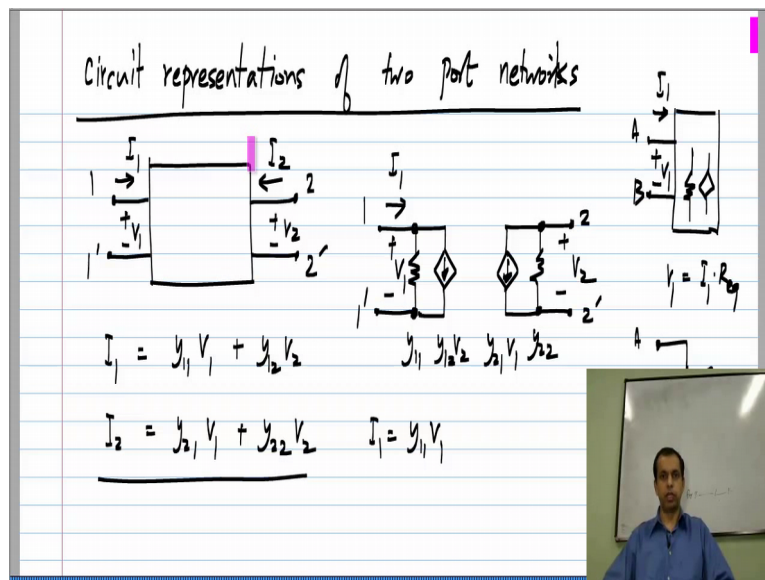 Circuit representations of two port networks
I₁ I₂
1 2
+ V₁ - + V₂ -
1' 2'
I₁ = y₁₁ V₁ + y₁₂ V₂
I₂ = y₂₁ V₁ + y₂₂ V₂
I₁
1 2
+ V₁ - + V₂ -
1' 2'
y₁₁ y₁₂V₂ y₂₁V₁ y₂₂
I₁ = y₁₁ V₁
I₁
A
+ V₁ -
B
V₁ = I₁ · Req
A